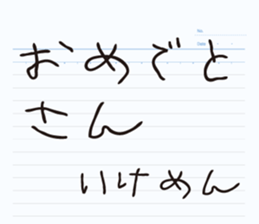 No.
Date
おめでと
さん
いけめん